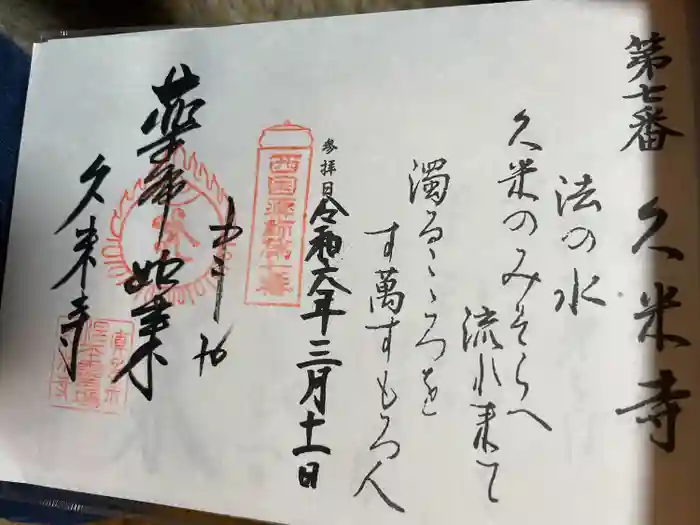 第七番 久米寺
法の水
久米のみそらへ
流れ来て
濁るこゝろを
す萬すもろ人
参拝日
令和六年三月十一日
西国薬師第七番
薬師如来
久米寺